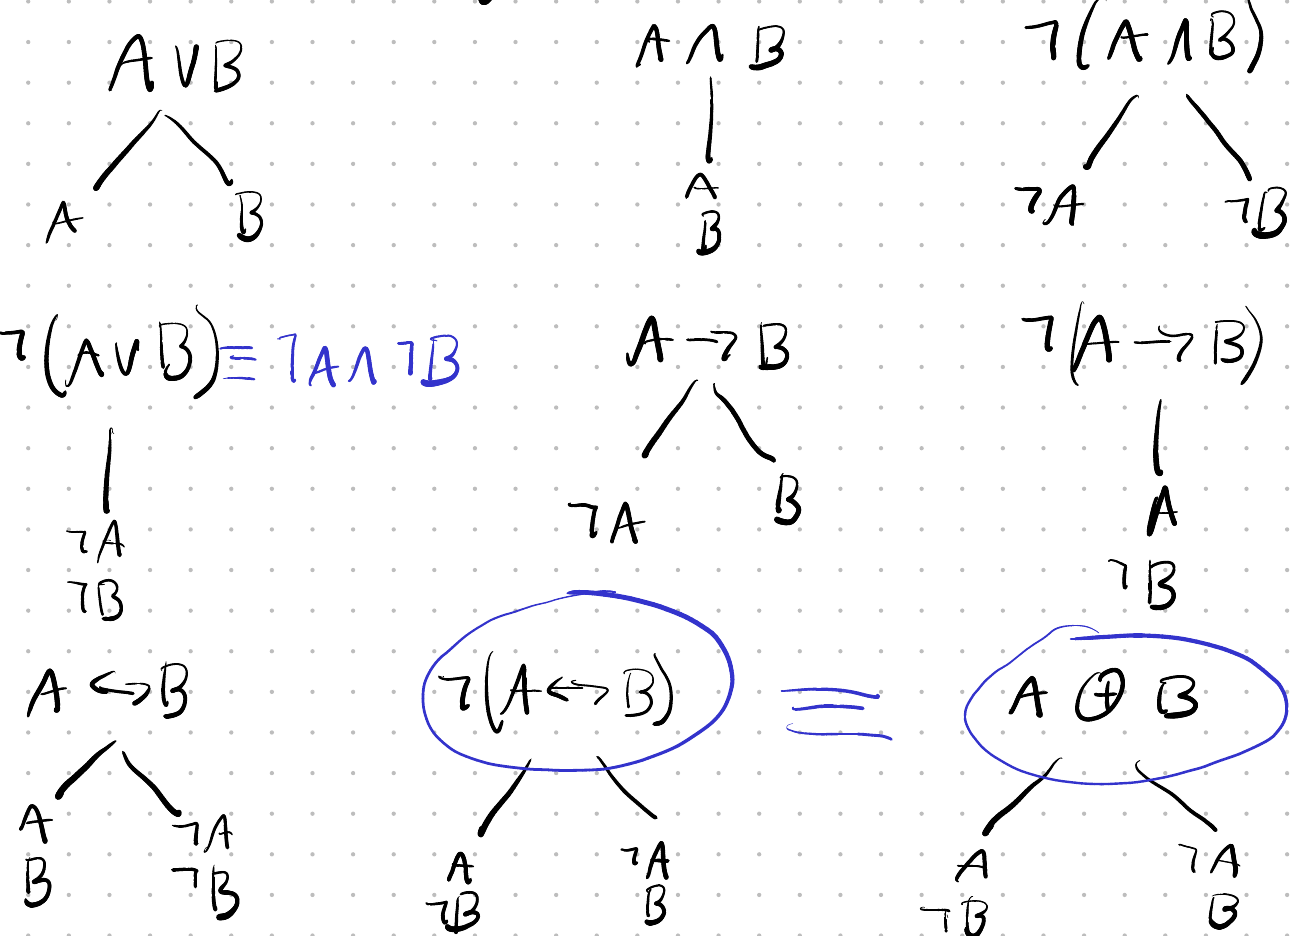 A ∨ B
A ∧ B
¬(A ∧ B)
A
B
A
B
¬A
¬B
¬(A ∨ B) ≡ ¬A ∧ ¬B
A → B
¬(A → B)
¬A
¬B
¬A
B
A
¬B
A ↔ B
¬(A ↔ B)
≡
A ⊕ B
A
B
¬A
¬B
A
¬B
¬A
B
A
¬B
¬A
B